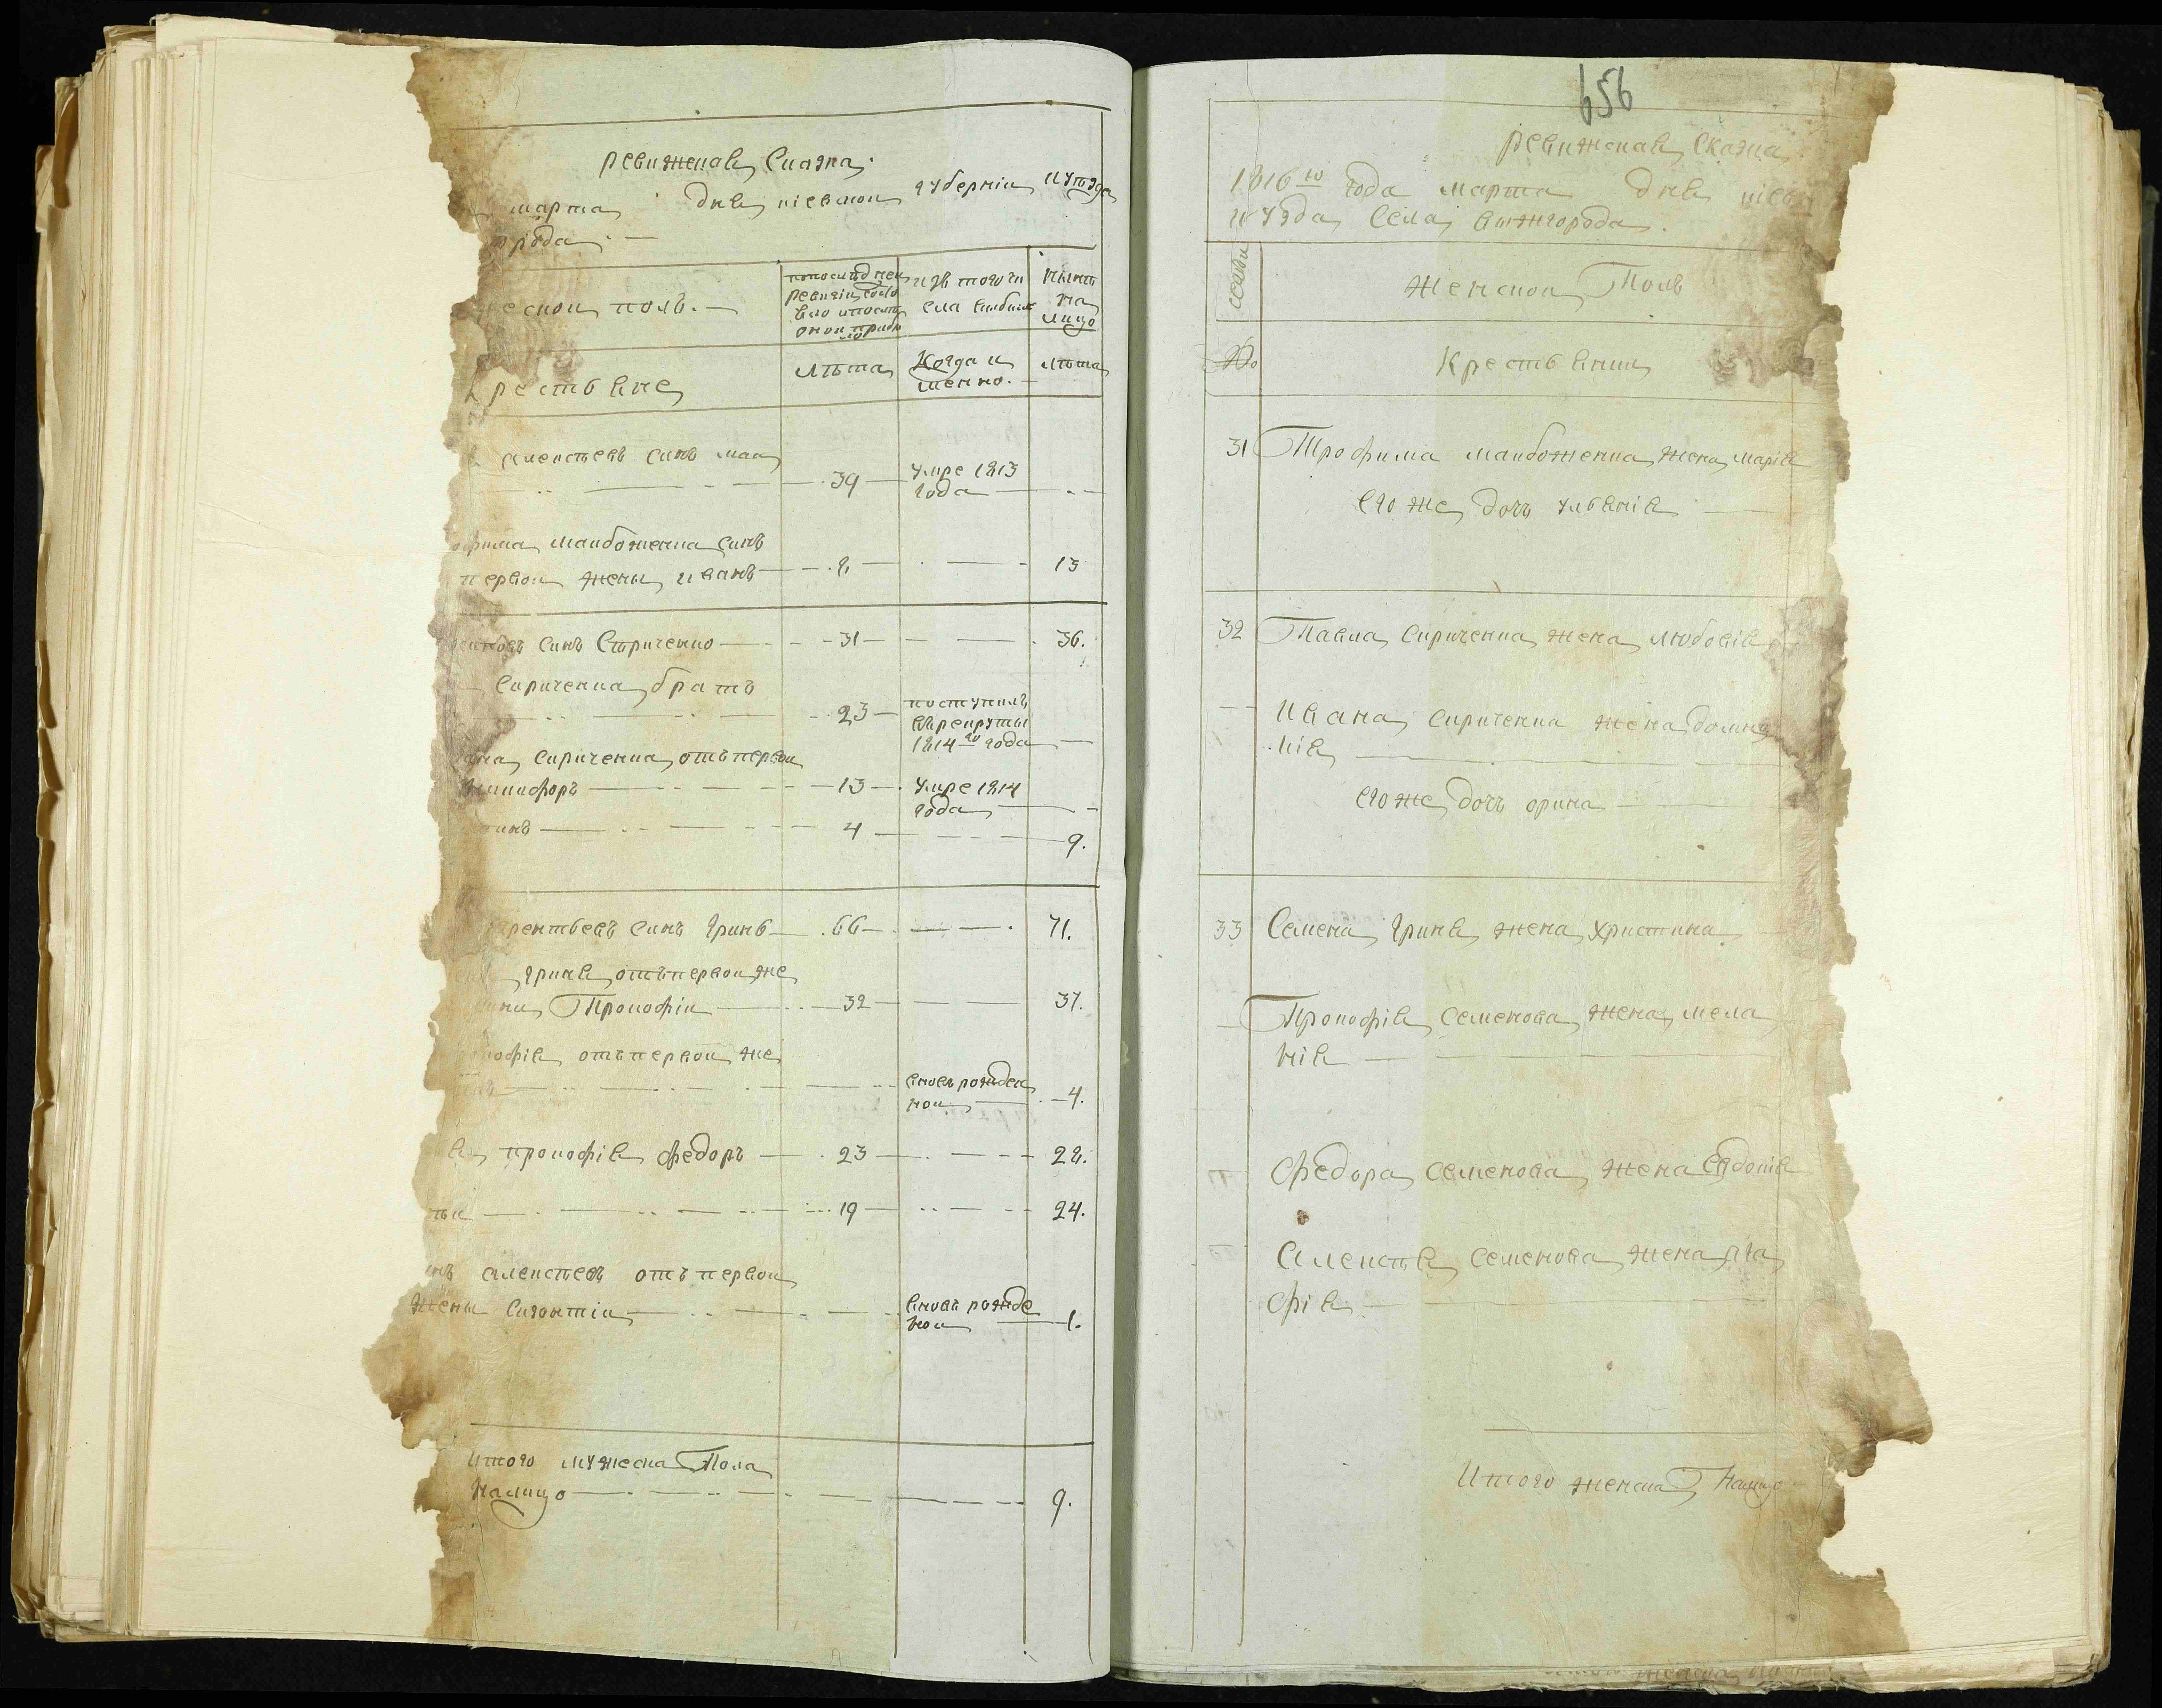 ревижская сказка
марта дня кіевской губерніи и уѣзда
города
пооследней
ревизіи состо
яло и после
оной прибы
ло
изъ того чи
сла выбыло
нынѣ
на
лицо
ской полъ.
крестьяне
лѣта
когда и
менно.
лѣта
алексѣевъ синъ мак
39
умре 1813
года
офима макбоженка синъ
первой жены иванъ
8
13
синъ Сприченко
31
36.
Сириченка братъ
23
поступилъ
въ рекруты
1814го года
Сириченка отъ первой
никифоръ
13
умре 1814
года
4
9.
ерентьевъ синъ Гринь
66
71.
гриня отъ первой же
Прокофій
32
37.
кофія отъ первой же
вновь рожден
ной
4.
прокофія федоръ
23
28.
19
24.
алексѣевъ отъ первой
жены Созонтій
вновь рожде
ной
1.
Итого мужеска Пола
налицо
9.
656
ревижская Сказка
1816го года марта дня кіев
и уѣзда Села вижгорода.
семьи
Женской Полъ
№
Крестьянки
31 Трофима макбоженка жена марія
Его же дочь ульянія
32 Павла Сириченка жена любовія
Ивана Сириченка жена домины
кія
Его же дочь орина
33 Семена Гриня жена христина
Прокофія Семенова жена мела
нія
Федора Семенова жена Евдокія
Алексѣя Семенова жена Ага
фія
Итого женска Налицо